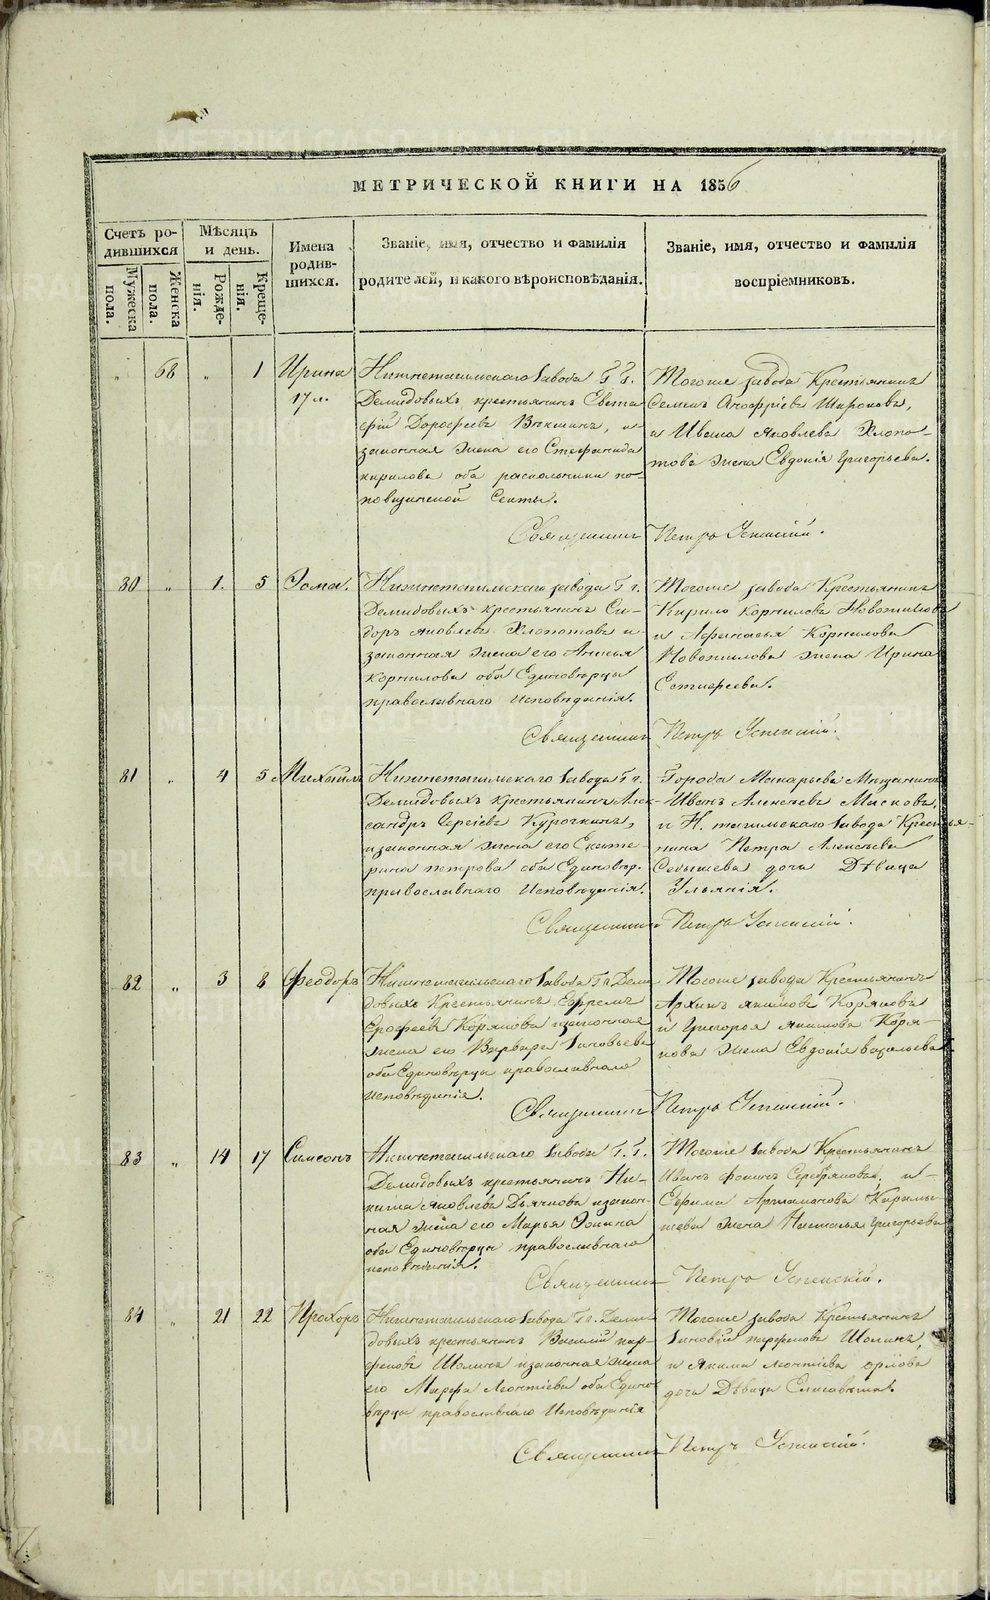 МЕТРИЧЕСКОЙ КНИГИ НА 1856
Счетъ ро-
дившихся
Мужеска пола.
Женска пола.
Мѣсяцъ
и день.
Рожде-
нія.
Креще-
нія.
Имена
родив-
шихся.
Званіе, имя, отчество и фамилія
родителей, и какого вѣроисповѣданія.
Званіе, имя, отчество и фамилія
воспріемниковъ.
" 68 " 1 Ирина
17 л.
Нижнетагильскаго завода Г. Г.
Демидовыхъ крестьянинъ Евста
фій Дорофеевъ Викшинъ, и
законная жена его Стефанида
кирилова оба раскольники по-
повщинской Секты.
Тогоже завода Крестьянинъ
Семенъ Анофріевъ Широковъ,
и Ивана Яковлева Хлопо-
това жена Евдокія Григорьева.
Священникъ Петръ Успенскій.
80 " 1. 5 Ѳома.
Нижнетагильскаго завода Г. г.
Демидовыхъ крестьянинъ Си-
доръ Яковлевъ Хлопотовъ и
законная жена его Анисья
Корнилова оба Единовѣрцы
православнаго исповѣданія.
Тогоже завода Крестьянинъ
Кирило Корниловъ Новожиловъ
и Афанасья Корнилова
Новожилова жена Ирина
Естифеева.
Священникъ Петръ Успенскій.
81 " 4 5 Михаилъ
Нижнетагильскаго завода Г. г.
Демидовыхъ крестьянинъ Алек-
сандръ Сергіевъ Курочкинъ,
и законная жена его Екате
рина петрова оба Единовѣр.
православнаго Исповѣданія.
Города Макарьева Мѣщанинъ
Иванъ Алексѣевъ Масковъ,
и Н. тагильскаго завода Крестья-
нина Петра Алексѣева
дочь Дѣвица
Ульянія.
Священникъ Петръ Успенскій.
82 " 3 8 Феодоръ
Нижнетагильскаго завода Г. г. Деми
довыхъ Крестьянинъ Ефремъ
Ерофеевъ Коряковъ и законная
жена его Варвара Зиновьева
оба Единовѣрцы православнаго
исповѣданія.
Тогоже завода Крестьянинъ
Архипъ Якимовъ Коряковъ
и Григорья Якимова Коря-
кова жена Евдокія васильева
Священникъ Петръ Успенскій.
83 " 14 17 Симеонъ
Нижнетагильскаго завода Г. Г.
Демидовыхъ крестьянинъ Ни-
кита Яковлевъ Дьячковъ и закон-
ная жена его Марья Ѳомина
оба Единовѣрцы православнаго
исповѣданія.
Тогоже завода Крестьянинъ
Иванъ Фоминъ Серебряковъ, и
Ефима Артамонова
жена Наталья Григорьева
Священникъ Петръ Успенскій.
84 " 21 22 Прохоръ
Нижнетагильскаго завода Г. г. Деми
довыхъ крестьянинъ Василій пар-
феновъ Шолинъ и законная жена
его Марфа Леонтіева оба Едино-
вѣрцы православнаго Исповѣданія
Тогоже завода Крестьянинъ
Зиновій парфеновъ Шолинъ,
и Якима Леонтіева орлова
дочь Дѣвица Елисавета.
Священникъ Петръ Успенскій.
METRIKI.GASO-URAL.RU